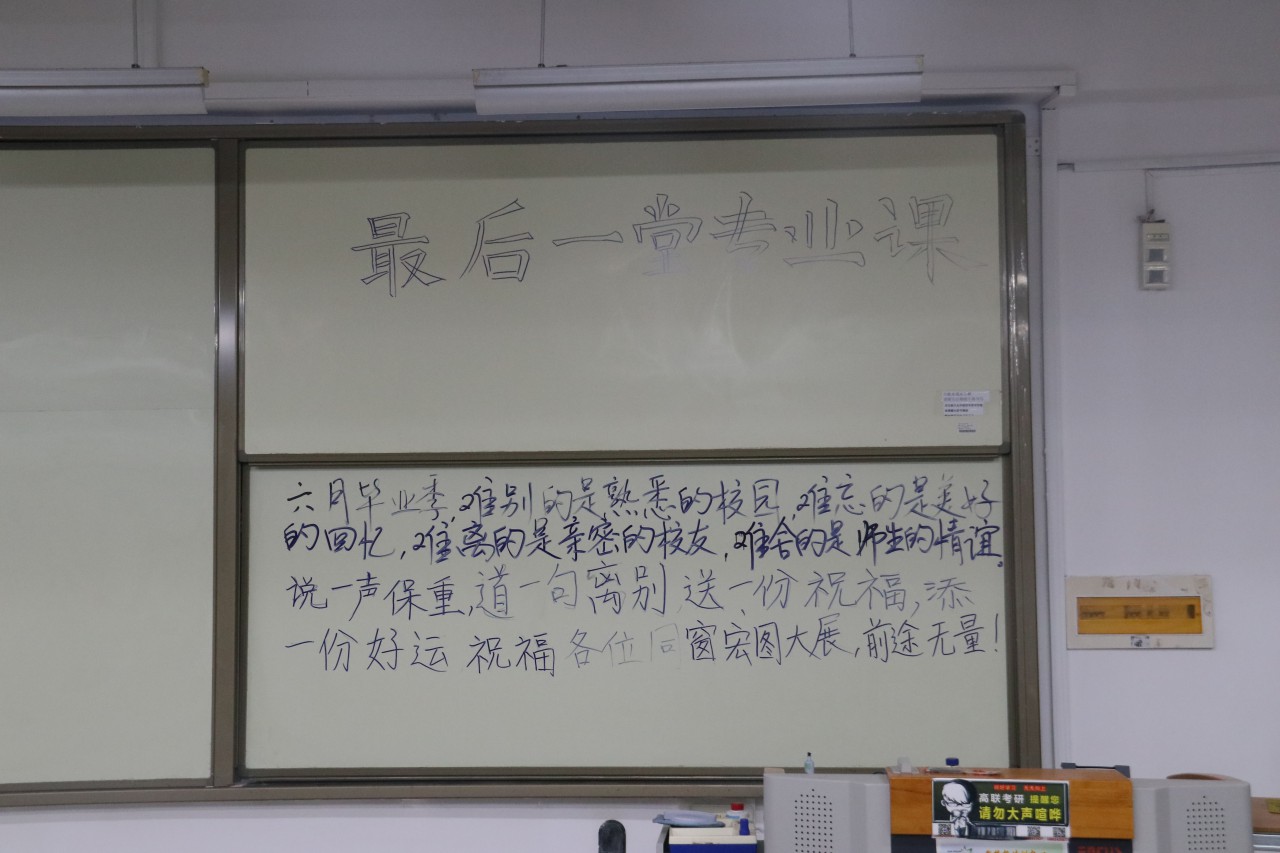 最后一堂专业课
六月毕业季,难别的是熟悉的校园,难忘的是美好
的回忆,难离的是亲密的校友,难舍的是师生的情谊。
说一声保重,道一句离别,送一份祝福,添
一份好运 祝福各位同窗宏图大展,前途无量!
高联考研 提醒您
请勿大声喧哗